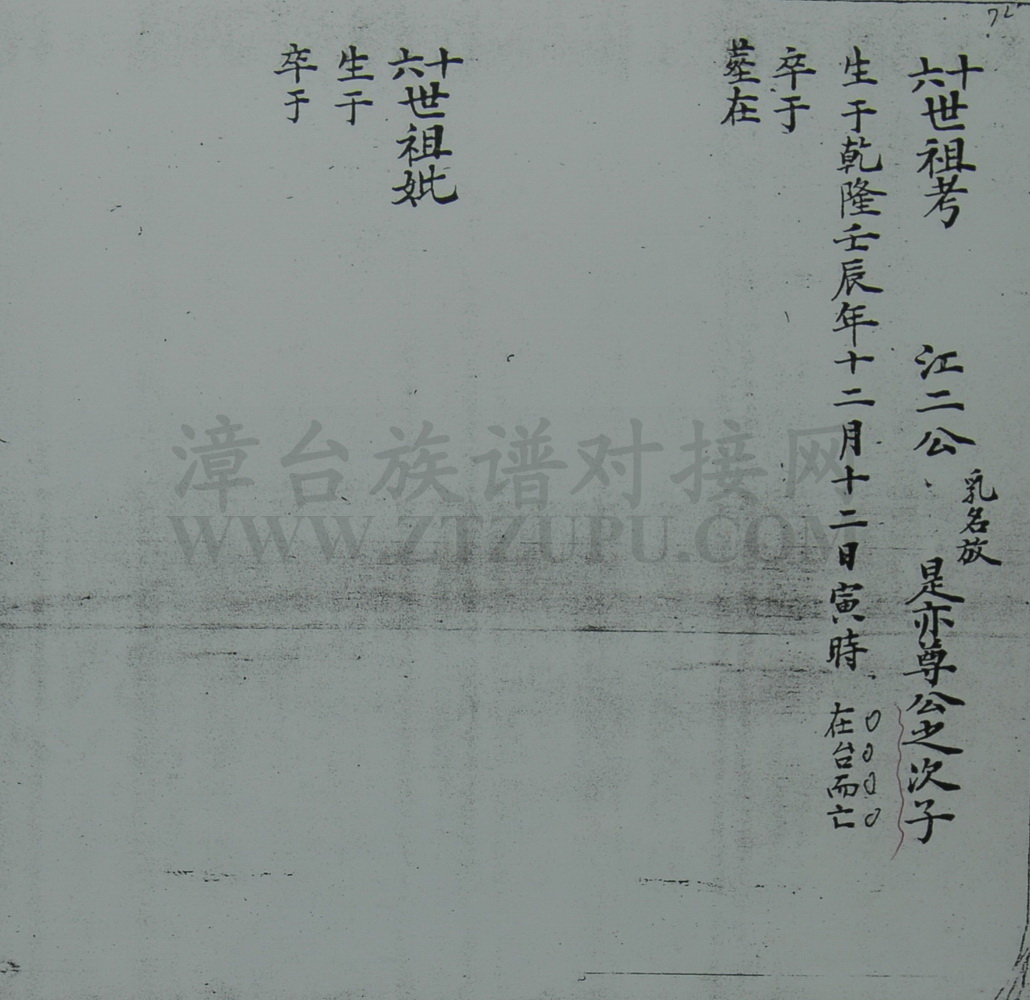 72
十六世祖考 江二公 乳名放 是亦尊公之次子
生于乾隆壬辰年十二月十二日寅時 在台而亡
卒于
塟在
十六世祖妣
生于
卒于
漳台族谱对接网
WWW.ZTZUPU.COM